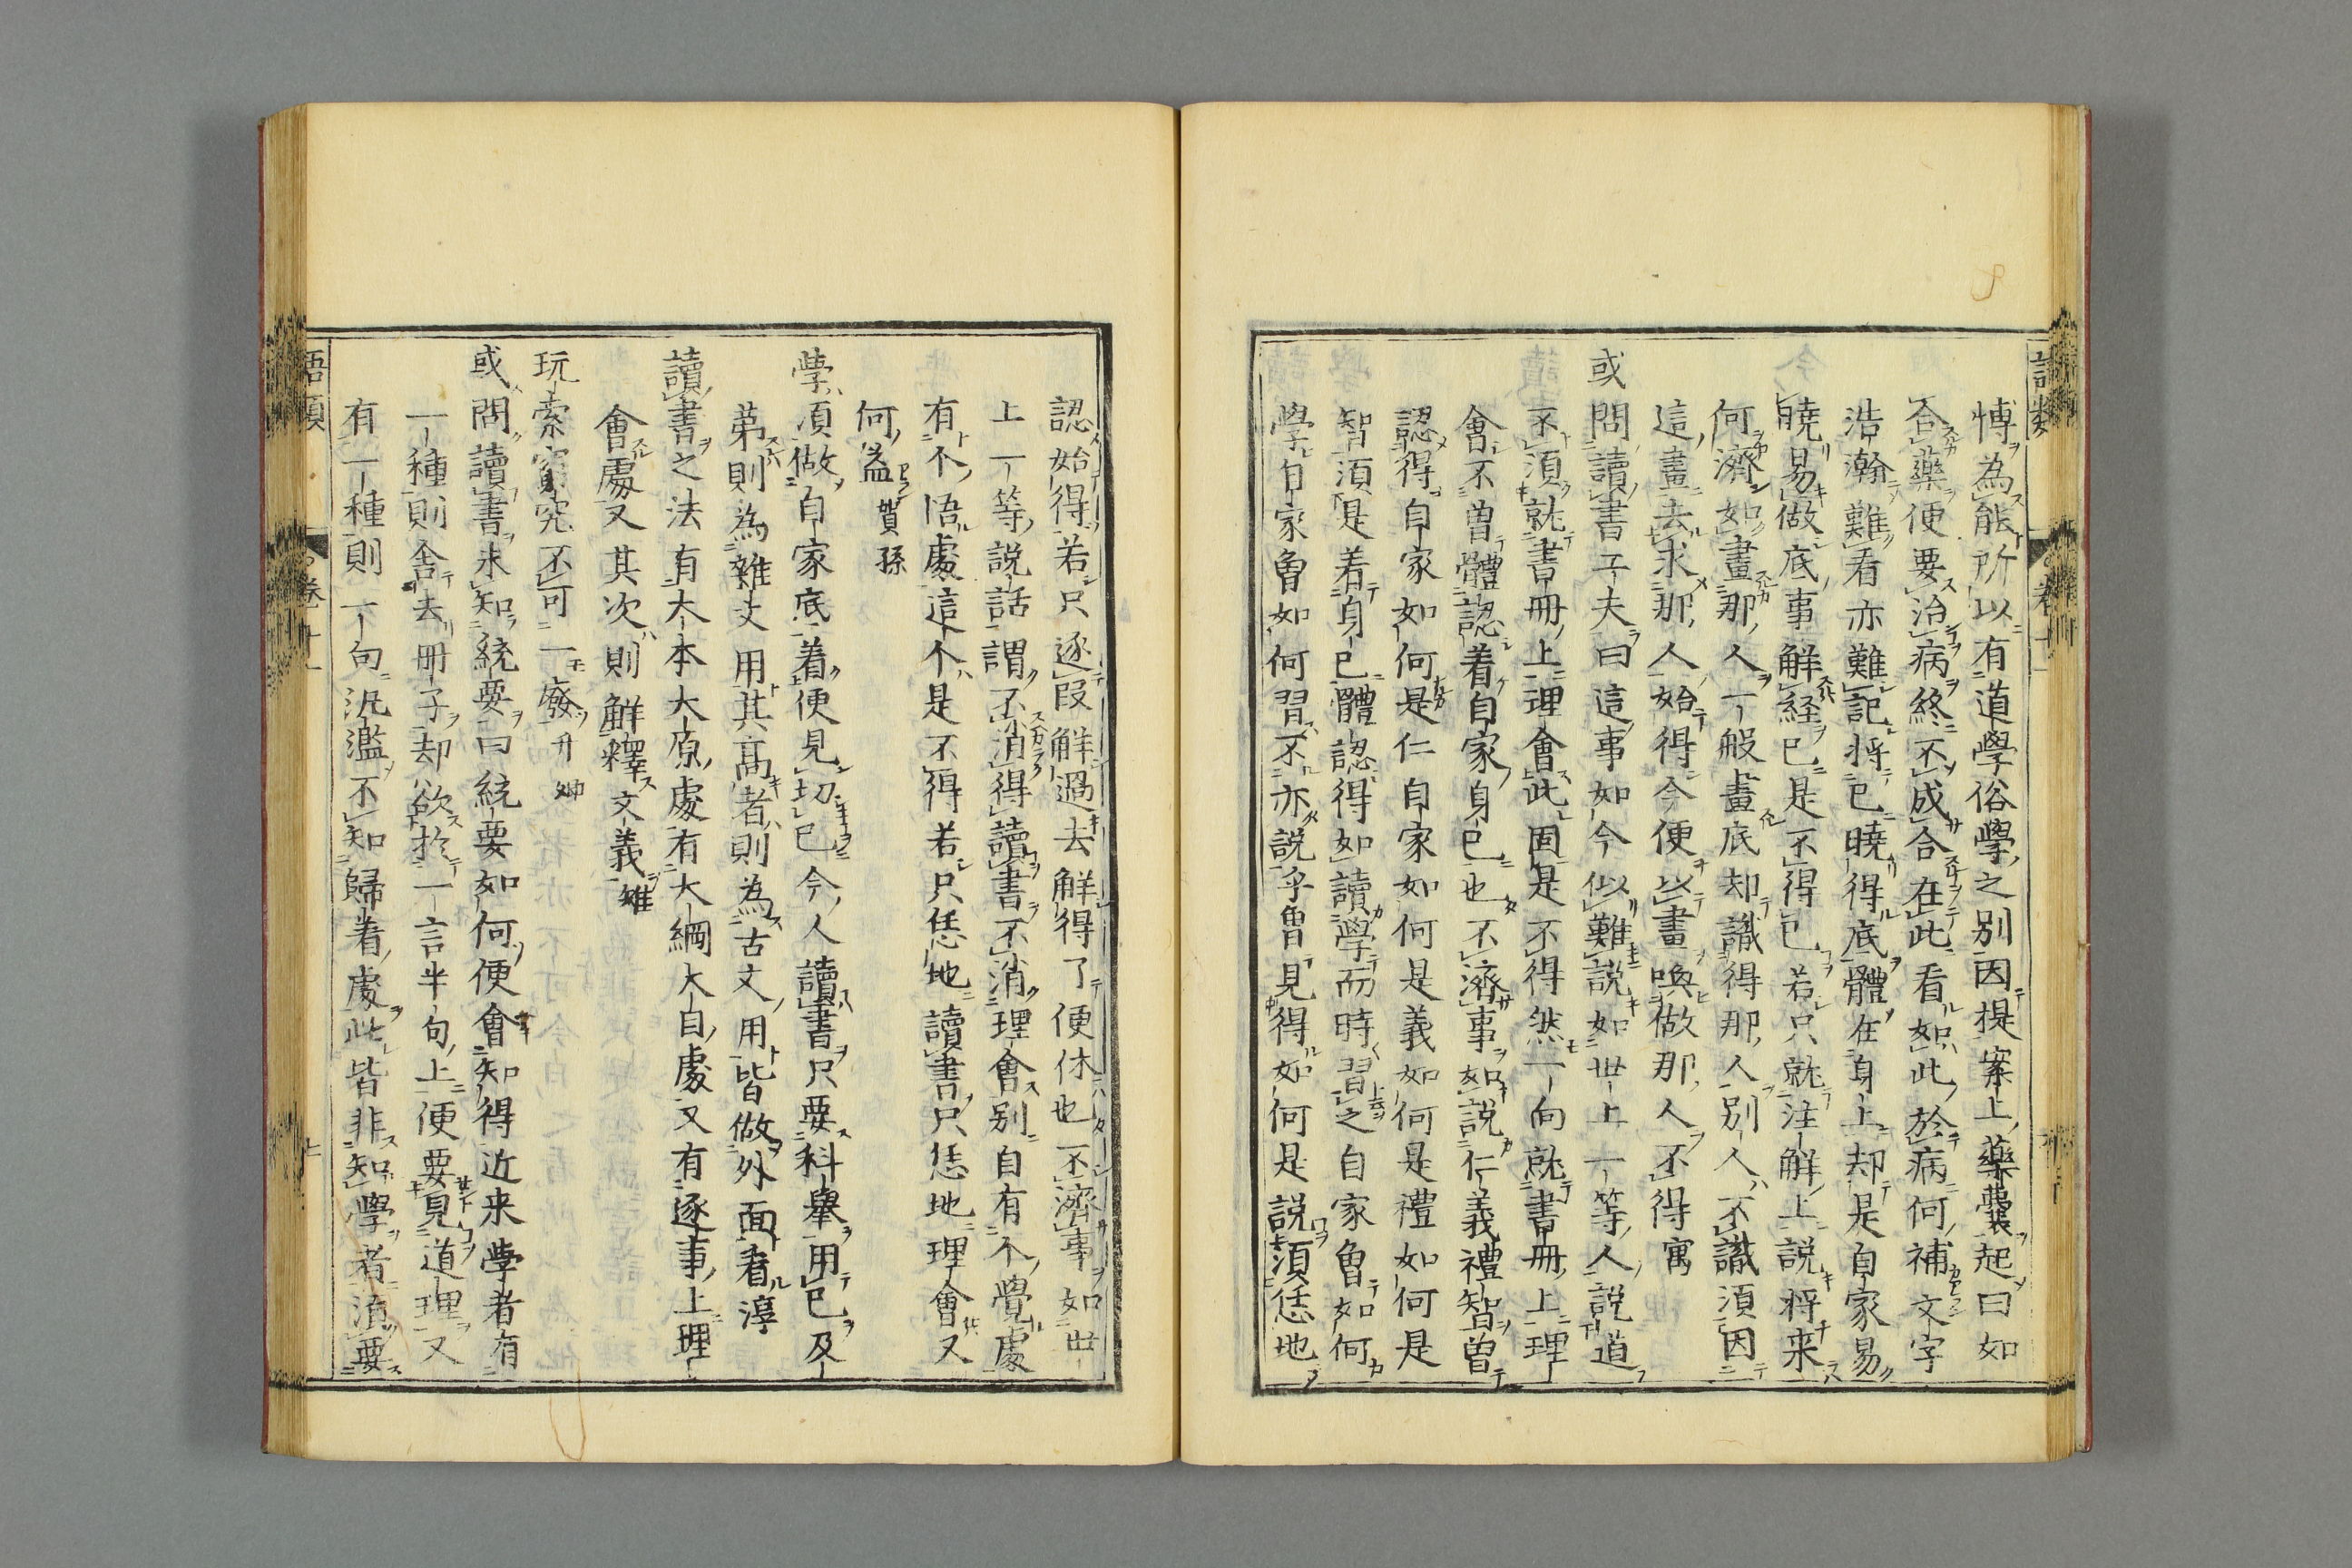 博為能所以有道學俗學之別因提案上藥囊起曰如
合藥便要治病終不成合在此看如此於病何補文字
浩瀚難看亦難記將已曉得底體在身上却是自家易
曉易做底事解経已是不得已若只就注解上説将来
何濟如畫那人一般畫底却識得那人別人不識須因
這畫去求那人始得今便以畫喚做那人不得寓
或問讀書工夫曰這事如今似難説如世上一等人説道
不須就書冊上理會此固是不得然一向就書冊上理
會不曽體認着自家身已也不濟事如説仁義禮智曽
認得自家如何是仁自家如何是義如何是禮如何是
智須是着身已體認得如讀學而時習之自家曽如何
學自家曽如何習不亦説乎曽見得如何是説須恁地
認始得若只逐段解過去解得了便休也不濟事如世
上一等説話謂不消得讀書不消理會別自有个覺處
有个悟處這个是不得若只恁地讀書只恁地理會又
何益賀孫
學須做自家底着便見切已今人讀書只要科舉用已及
第則為雜文用其髙者則為古文用皆做外面看淳
讀書之法有大本大原處有大綱大目處又有逐事上理
會處又其次則解釋文義雉
玩索窮究不可一廢升卿
或問讀書未知統要曰統要如何便會知得近来學者有
一種則舎去冊子却欲於一言半句上便要見道理又
有一種則一向汎濫不知歸着處此皆非知學者須要
語類
卷十一
七